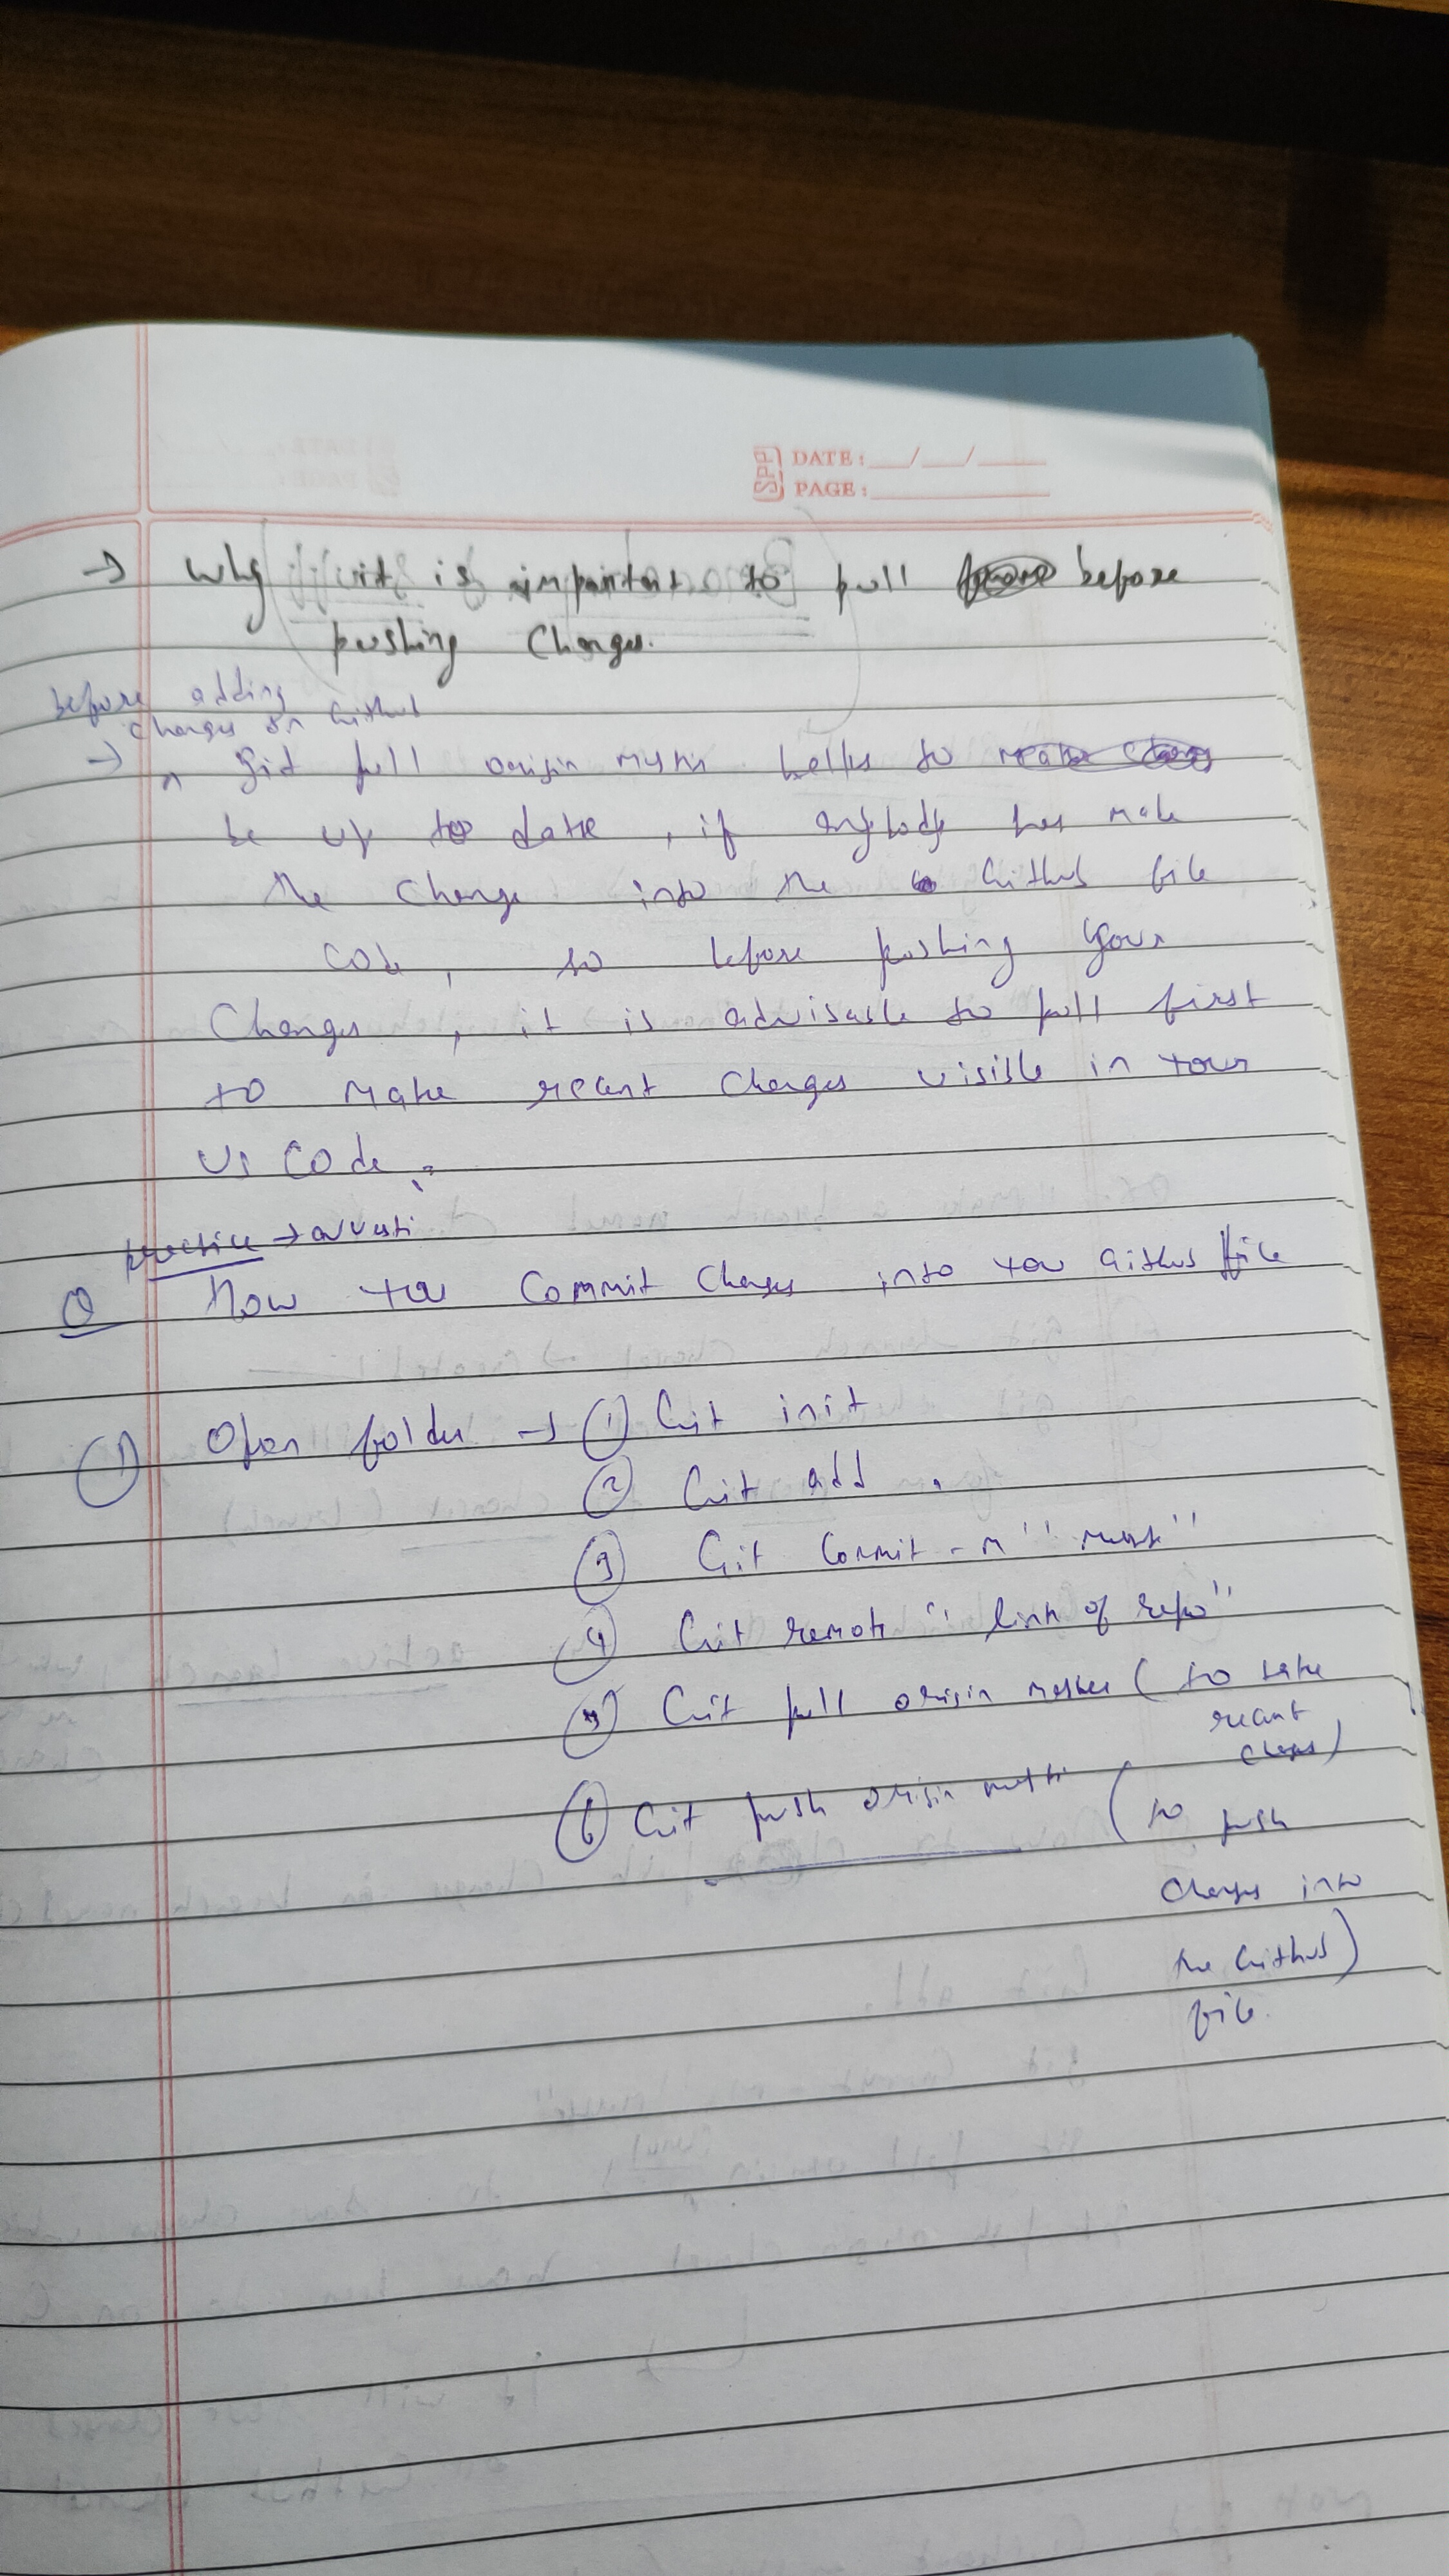 SPH DATE: __/__/____
PAGE:
→ Why it is important to pull before
pushing Changes.
before adding
changes on Github
→ ^ git pull origin helps to
be up to date , if anybody has made
the change into the Github file
Code , so before pushing your
Changes , it is advisable to pull first
to make recent changes visible in your
Vs Code .
practice →
Q How you Commit Changes into you Github file
① Open folder → ① Git init
② Git add .
③ Git Commit - m " "
④ Git remote " link of repo"
⑤ Git pull origin master ( to take
recant
changes)
⑥ Git push origin ( to push
changes into
the Github)
file.